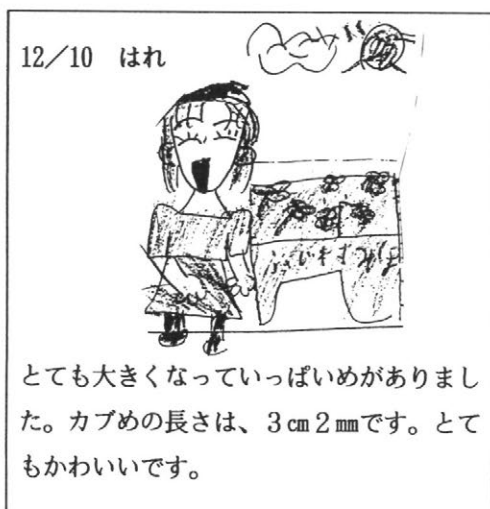 12/10 はれ
とても大きくなっていっぱいめがありまし
た。カブめの長さは、3㎝2㎜です。とて
もかわいいです。